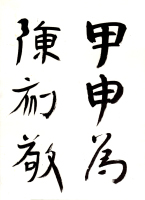 甲申為
陳敬